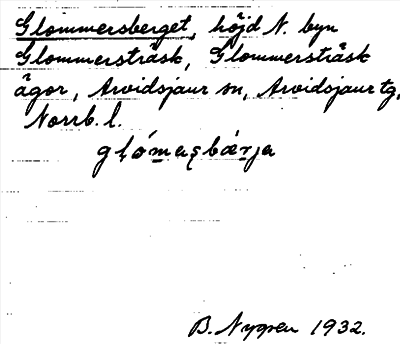 Glommersberget, höjd N. byn
Glommersträsk, Glommersträsk
ägor, Arvidsjaur sn, Arvidsjaur tg,
Norrb. l.
glómaʂbærja
B. Nygren 1932.